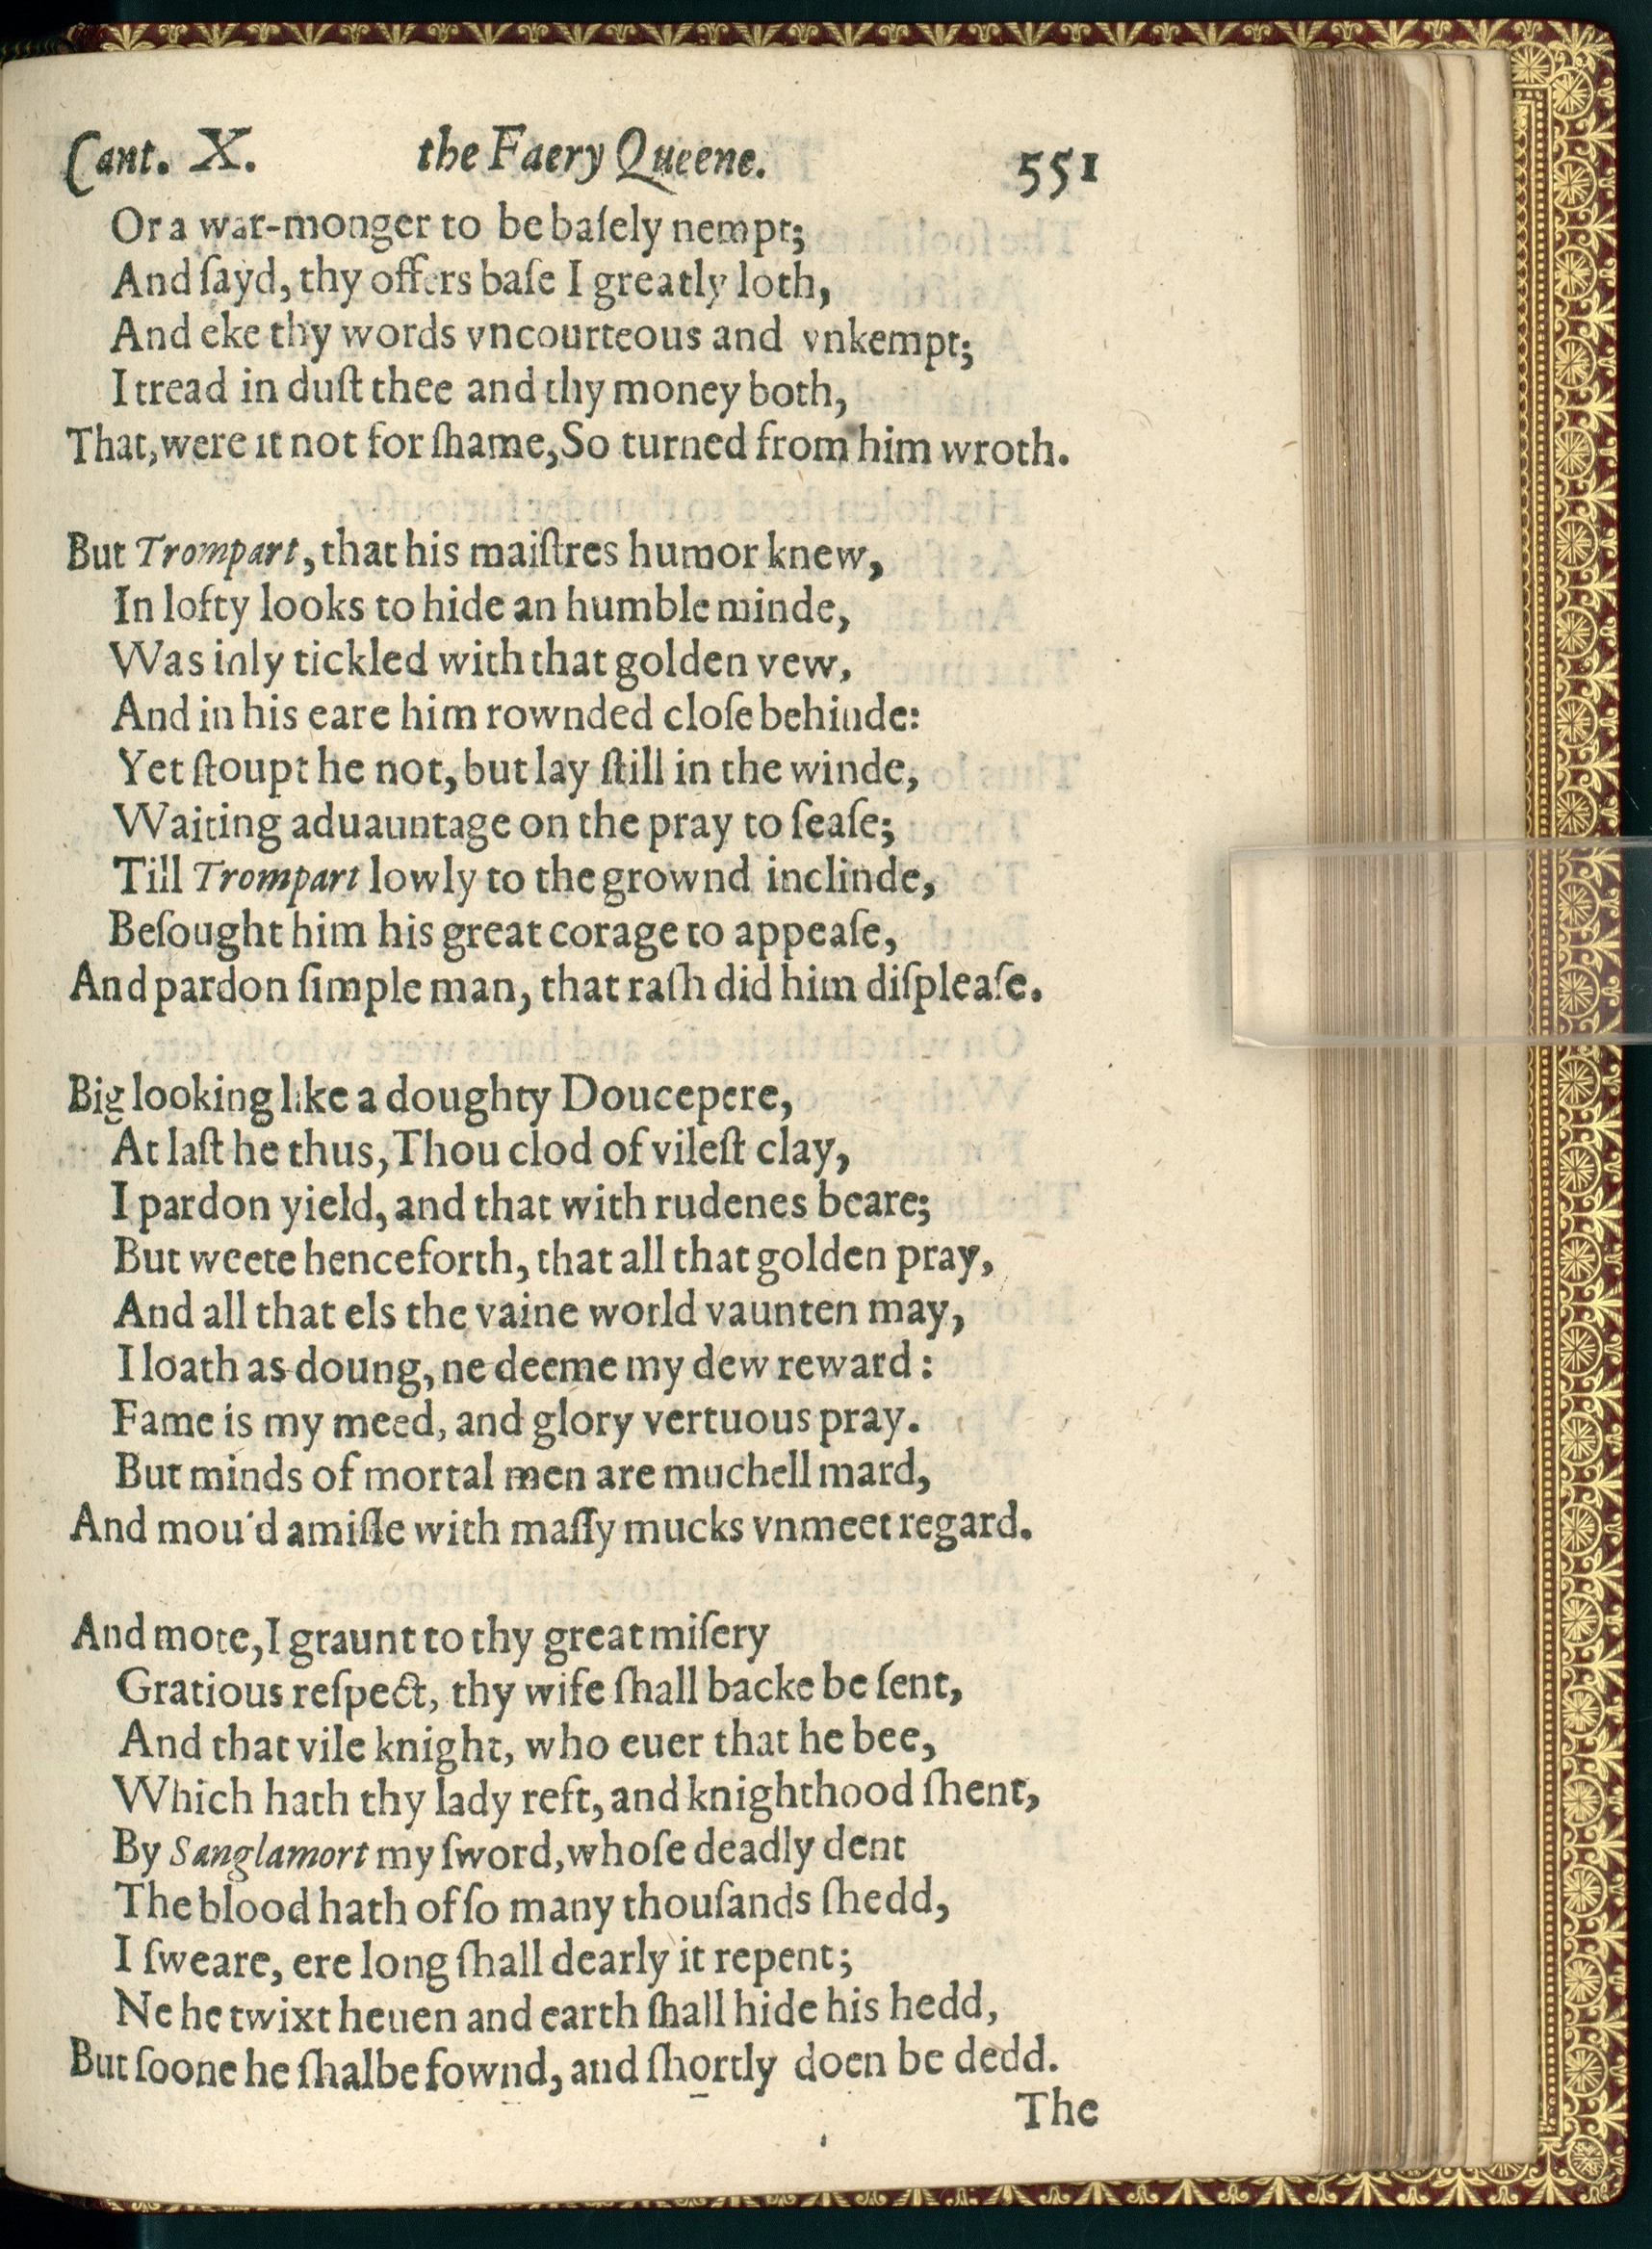 Cant. X. the Faery Queene. 551
Or a war-monger to be baſely nempt;
And ſayd, thy offers baſe I greatly loth,
And eke thy words vncourteous and vnkempt;
I tread in duſt thee and thy money both,
That, were it not for ſhame, So turned from him wroth.
But Trompart, that his maiſtres humor knew,
In lofty looks to hide an humble minde,
Was inly tickled with that golden vew,
And in his eare him rownded cloſe behinde:
Yet ſtoupt he not, but lay ſtill in the winde,
Waiting aduauntage on the pray to ſeaſe;
Till Trompart lowly to the grownd inclinde,
Beſought him his great corage to appeaſe,
And pardon ſimple man, that raſh did him diſpleaſe.
Big looking like a doughty Doucepere,
At laſt he thus, Thou clod of vileſt clay,
I pardon yield, and that with rudenes beare;
But weete henceforth, that all that golden pray,
And all that els the vaine world vaunten may,
I loath as doung, ne deeme my dew reward:
Fame is my meed, and glory vertuous pray.
But minds of mortal men are muchell mard,
And mou'd amiſſe with maſſy mucks vnmeet regard.
And mote, I graunt to thy great miſery
Gratious reſpect, thy wife ſhall backe be ſent,
And that vile knight, who euer that he bee,
Which hath thy lady reft, and knighthood ſhent,
By Sanglamort my ſword, whoſe deadly dent
The blood hath of ſo many thouſands ſhedd,
I ſweare, ere long ſhall dearly it repent;
Ne he twixt heuen and earth ſhall hide his hedd,
But ſoone he ſhalbe fownd, and ſhortly doen be dedd.
The